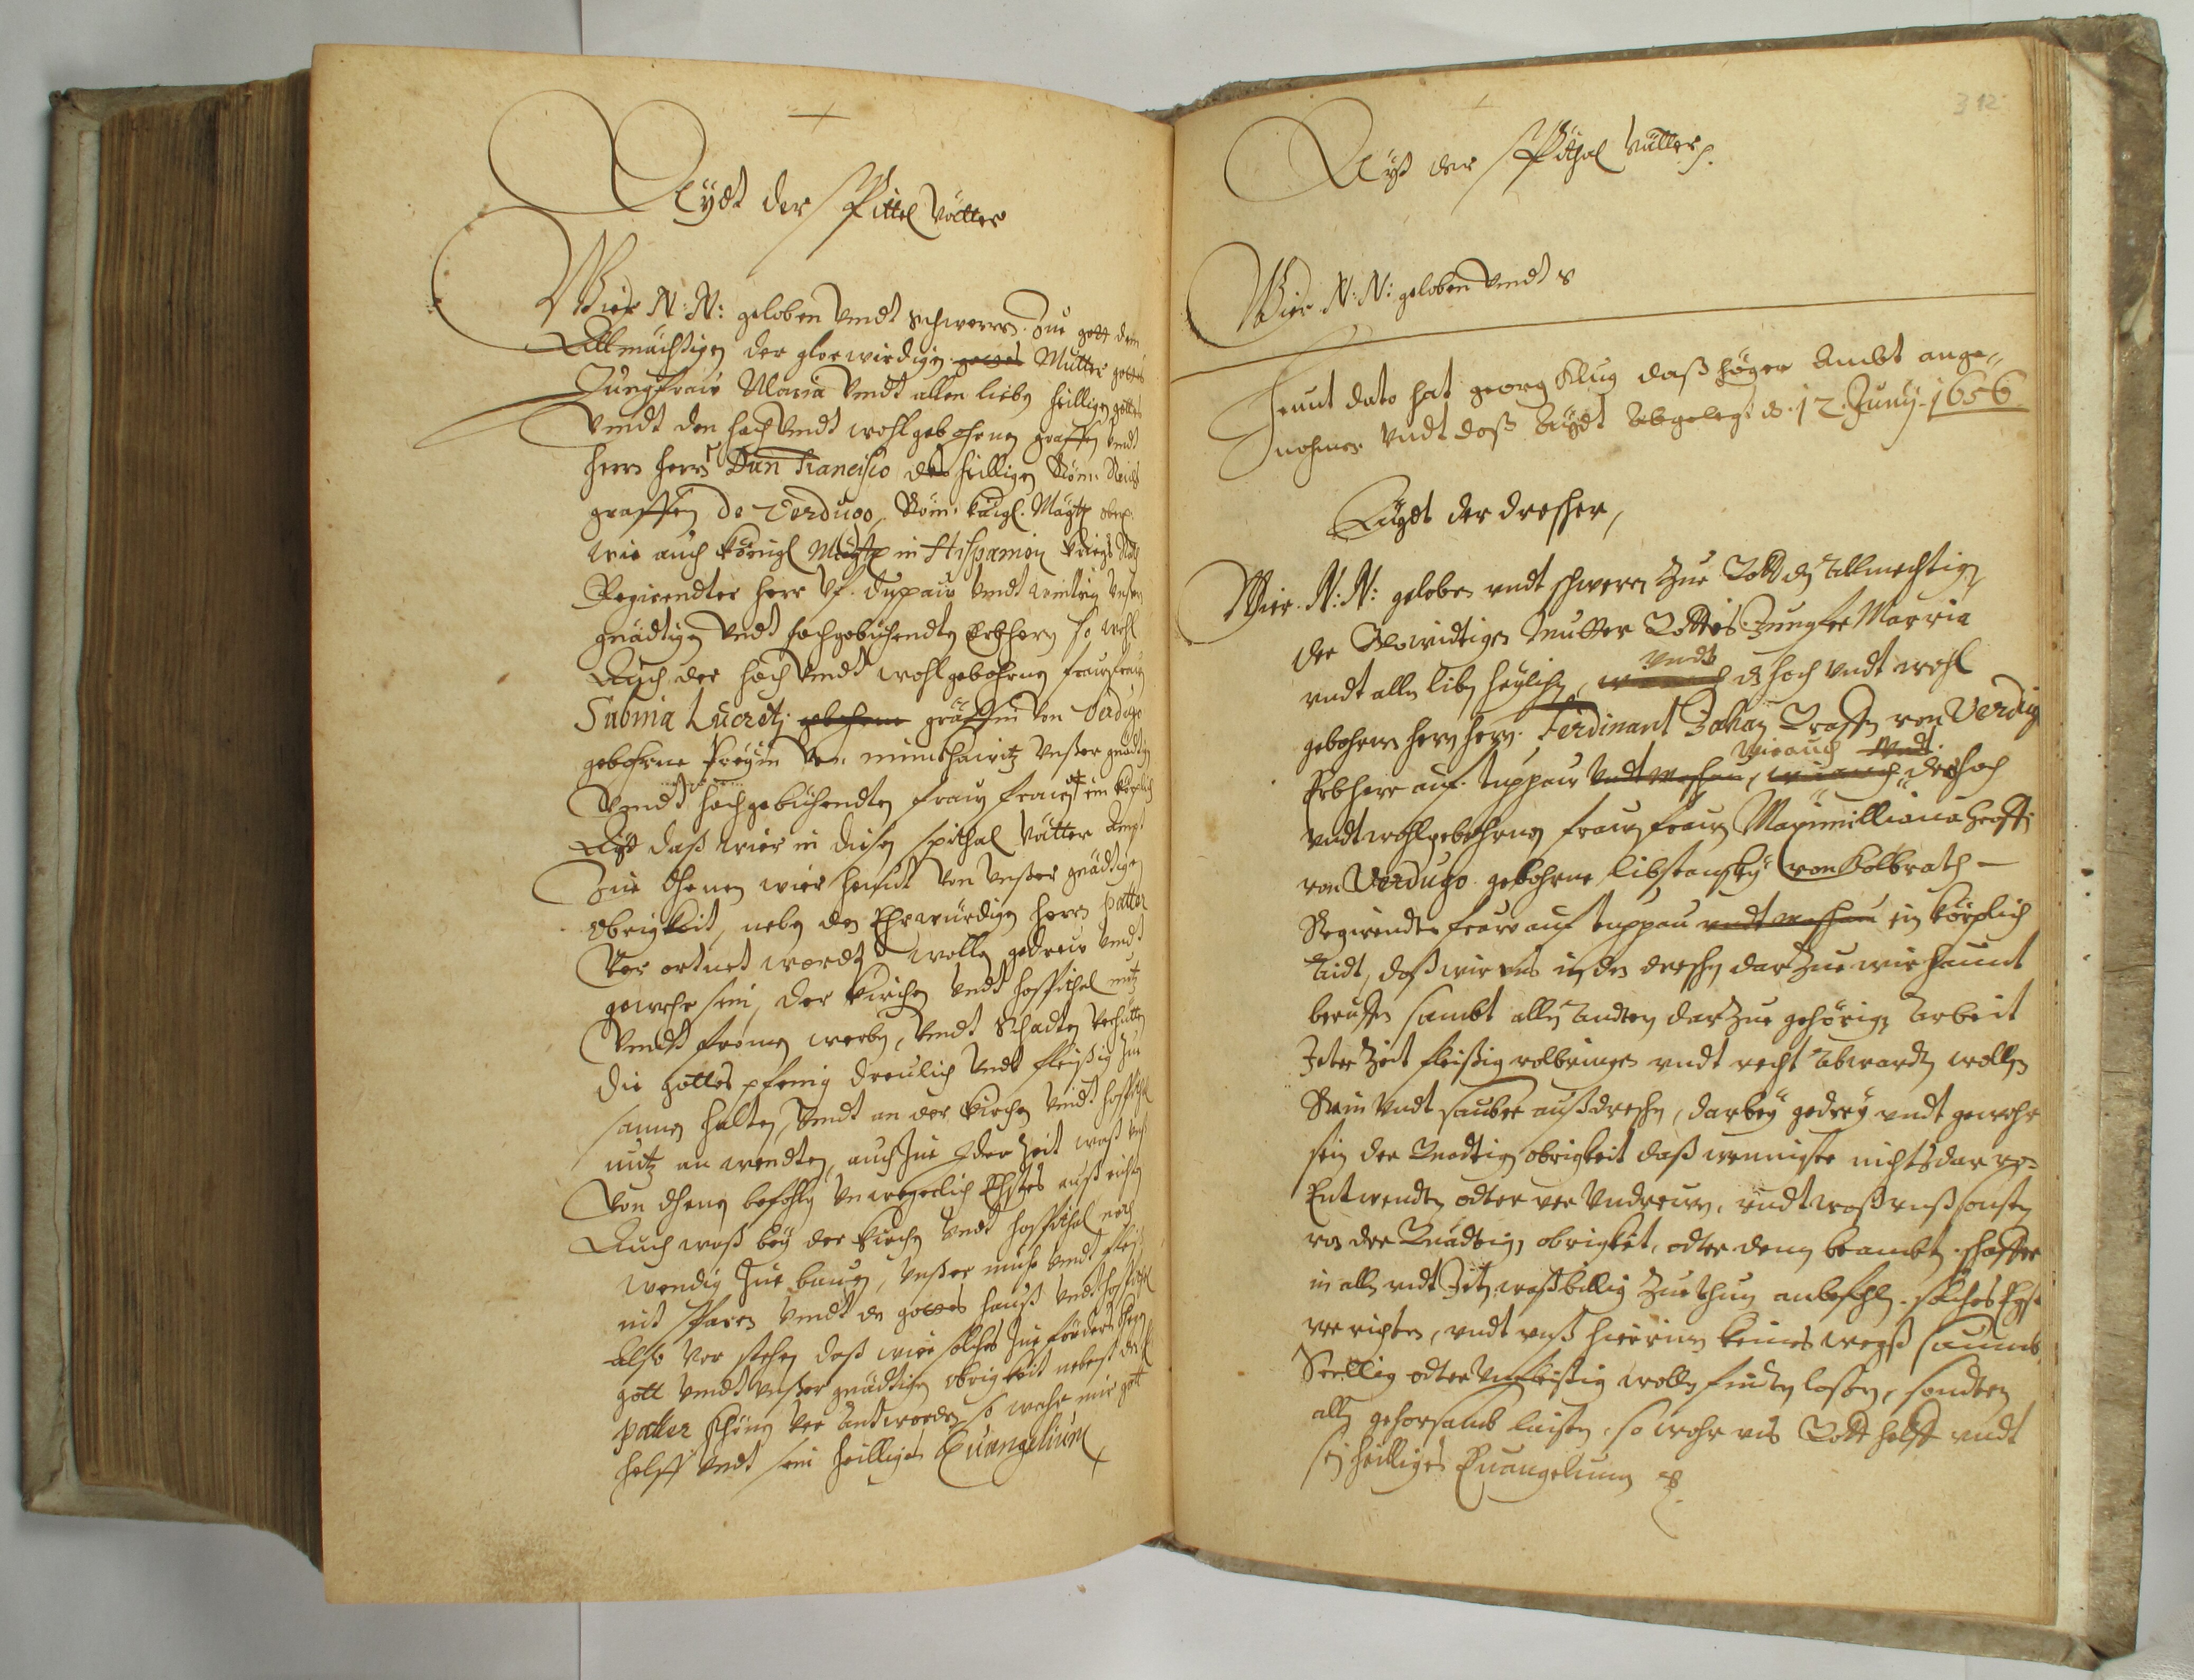 Aÿdt der Spittel Vätter
Wier N: N: geloben Vndt Schweren Zue gott dem
Allmächtigen der glorwirdigen gottes Mutter gottes
Jungfraw Maria Vndt allen lieben heilligen gottes
Vndt den hoch Vndt wohlgebohrnen graffen Vndt
herrn herrn Dun Francisco des heilligen Röm: Reichs
graffen De Verdugo, Röm: kaÿgl: Maÿtt
wie auch königl Maÿtt in Hispanien kriegs Rath
Regirendter herr vf Duppau Vndt
gnädigen Vndt hochgebüthendten Erbherrn so wohl
Auch der hoch Vndt wohlgebohrnen frawen frawen
Lucretj gebohrne gräffin von Verdugo
gebohrne Freÿin Von Vnßer gnädigen
Vndt hochgebüthendten frawen frawen ein körplich
Aÿdt daß wier in diesen Spithal Vätter Ampt
Zue denen wier heundt von Vnßer gnädigen
obrigkeit, neben den Ehrwürdigen herrn patter
Ver ortnet worden wollen gedreu Vndt
gewehr sein, der kirchen Vndt hospithal nutz
Vndt fromen werben, Vndt Schadten verhütten
die gottes pfenig dreulich Vndt fleißig Zue
samen halten, Vndt an der kirchen Vndt hospithal
nutz an wendten, auch Zue Jder Zeit waß Vnß
Von denen befohlen Vnwegerlich Ehstes auß richten
Auch waß beÿ der kirchen Vndt hospithal noth
wendig Zue bauen, Vnßer mühe Vndt fleiß
nit sparen Vndt den gottes hauß Vndt hospithal
Also Vor stehen daß wier solches Zue förderst gegen
gott Vndt Vnßer gnädtigen obrigkeit nebenst den h:
patter khönen Ver Antworden so wahr mir gott
helff Vndt sein heilliges Euangelium
312
Aÿdt der Spithal Vätter p.
Wier N: N: geloben Vndt
Heunt dato hat georg Klug daß heger Ambt ange„
nohmen Vndt daß Aÿdt Abgelegt d. 12. Junÿ. 1656
Aÿdt der drescher,
Wier. N: N: geloben vndt schweren Zue Gott den Allmechtigen
der Glorwürdigen Mutter Gottes Jungfer Marria
Vndt
vndt allen liben heÿlichen, wie auch den hoch vndt wohl
gebohrnen herrn herrn. Ferdinant Johan Graffen von Verdug
wie auch Vndt
Erbherr auf Tuppau Vndt Maschau, wie auch der hoch
vndt wohlgebohrnen frawen frawen Maximilliana Greffin
von Verdugo gebohrne Libstanskÿ von Kolbrath —
Regirendte fraw auf Tuppau vndt Maschau ein körplich
Aidt, daß wir vns in den dreschen dar Zue wir heunt
beruffen sambt allen Andten dar Zue gehörigen Arbeit
Jeter Zeit fleißig volbringen vndt recht Abwardten wollen
Rein Vndt sauber außdreschen, darbeÿ gedreÿ vndt gewehr
sein der Gnadtigen obrigkeit daß wennigste nichts dar von
Entwendten odter ver Vndreuen, vndt waß vnß sonsten
von der Gnädtigen obrigkeit, odter denen beambten, schaffer
in allen vndt Jeten waß billig Zue thun anbefohlen. solches Ehst
verrichten, vndt vnß hierinen keines wegß saumb
Seellig odter Vnfleißig wollen finden lassen, sondern
allen gehorsamb leisten, so wahr vns Gott helff vndt
sein heilliges Euangelium